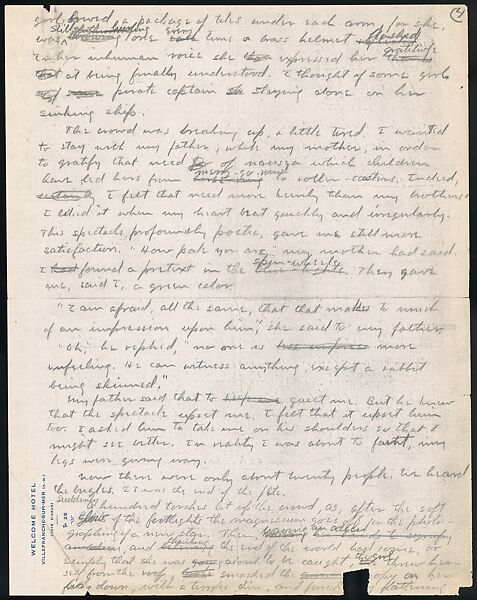 girl bowed, a package of tiles under each arm, for she
Still
was one more time a brass helmet flashed
gratitude
In her inhuman voice she expressed her
that at being finally understood. I thought of some girl
of some pirate captain she staying alone on her
sinking ship.
The crowd was breaking up, a little tired. I wanted
to stay with my father, while my mother, in order
to gratify that need of nausea which children
merry-go-rounds
have led hers from to roller-coasters. Indeed,
certainly I felt that need more keenly than my brothers
I called it when my heart beat quickly and irregularly.
This spectacle, profoundly poetic, gave me still more
satisfaction. "How pale you are," my mother had said.
spin-wheels
I had found a pretext in the bengal-lights. They gave
me, said I, a green color.
"I am afraid, all the same, that that makes to much
of an impression upon him," she said to my father.
"Oh," he replied, "no one is less impress more
unfeeling. He can witness anything, except a rabbit
being skinned."
My father said that to quiet me. But he knew
that the spectacle upset me. I felt that it upset him
too. I asked him to take me on his shoulders so that I
might see better. In reality I was about to faint, my
legs were giving way.
Now there were only about twenty people. We heard
the bugles. It was the end of the fête.
Suddenly
A hundred torches lit up the crowd, as, after the soft
of the footlights the magnesium goes off for the photo
graphing of a new star. Then,
and the end of the world has come, or
simply that she was going about to be caught, the girl threw her-
self from the roof, smashed the canopy on her
down, with a terrible din, and finished by flattening
WELCOME HOTEL
VILLEFRANCHE-SUR-MER (A.-M.)